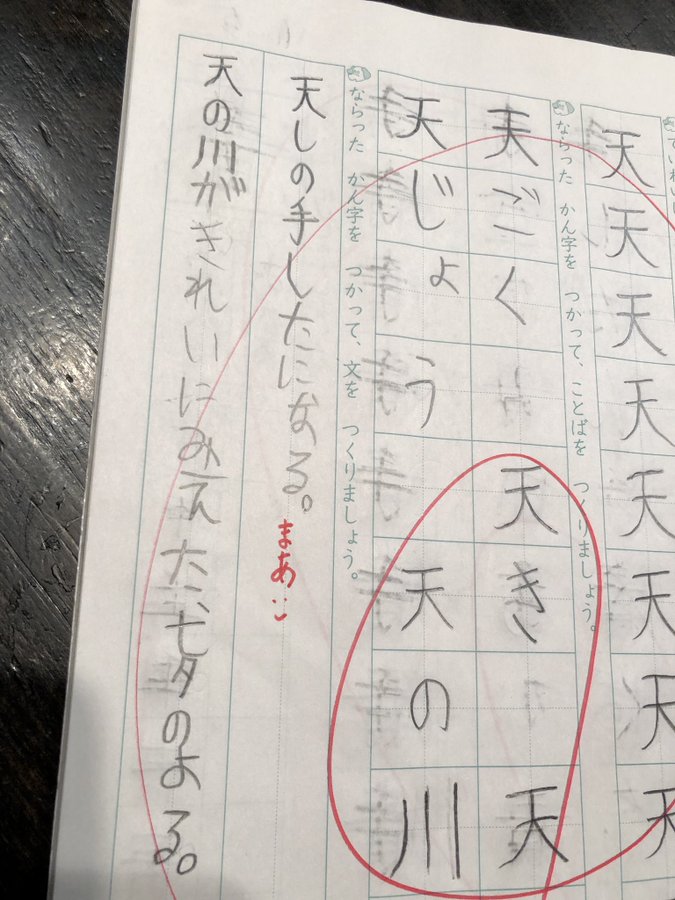 ていねいに
天天天天天天天天
ならった かん字を つかって、ことばを つくりましょう。
天ごく 天き 天
天じょう 天の川
ならった かん字を つかって、文を つくりましょう。
天しの手したになる。
まあ
天の川がきれいにみえた、七夕のよる。